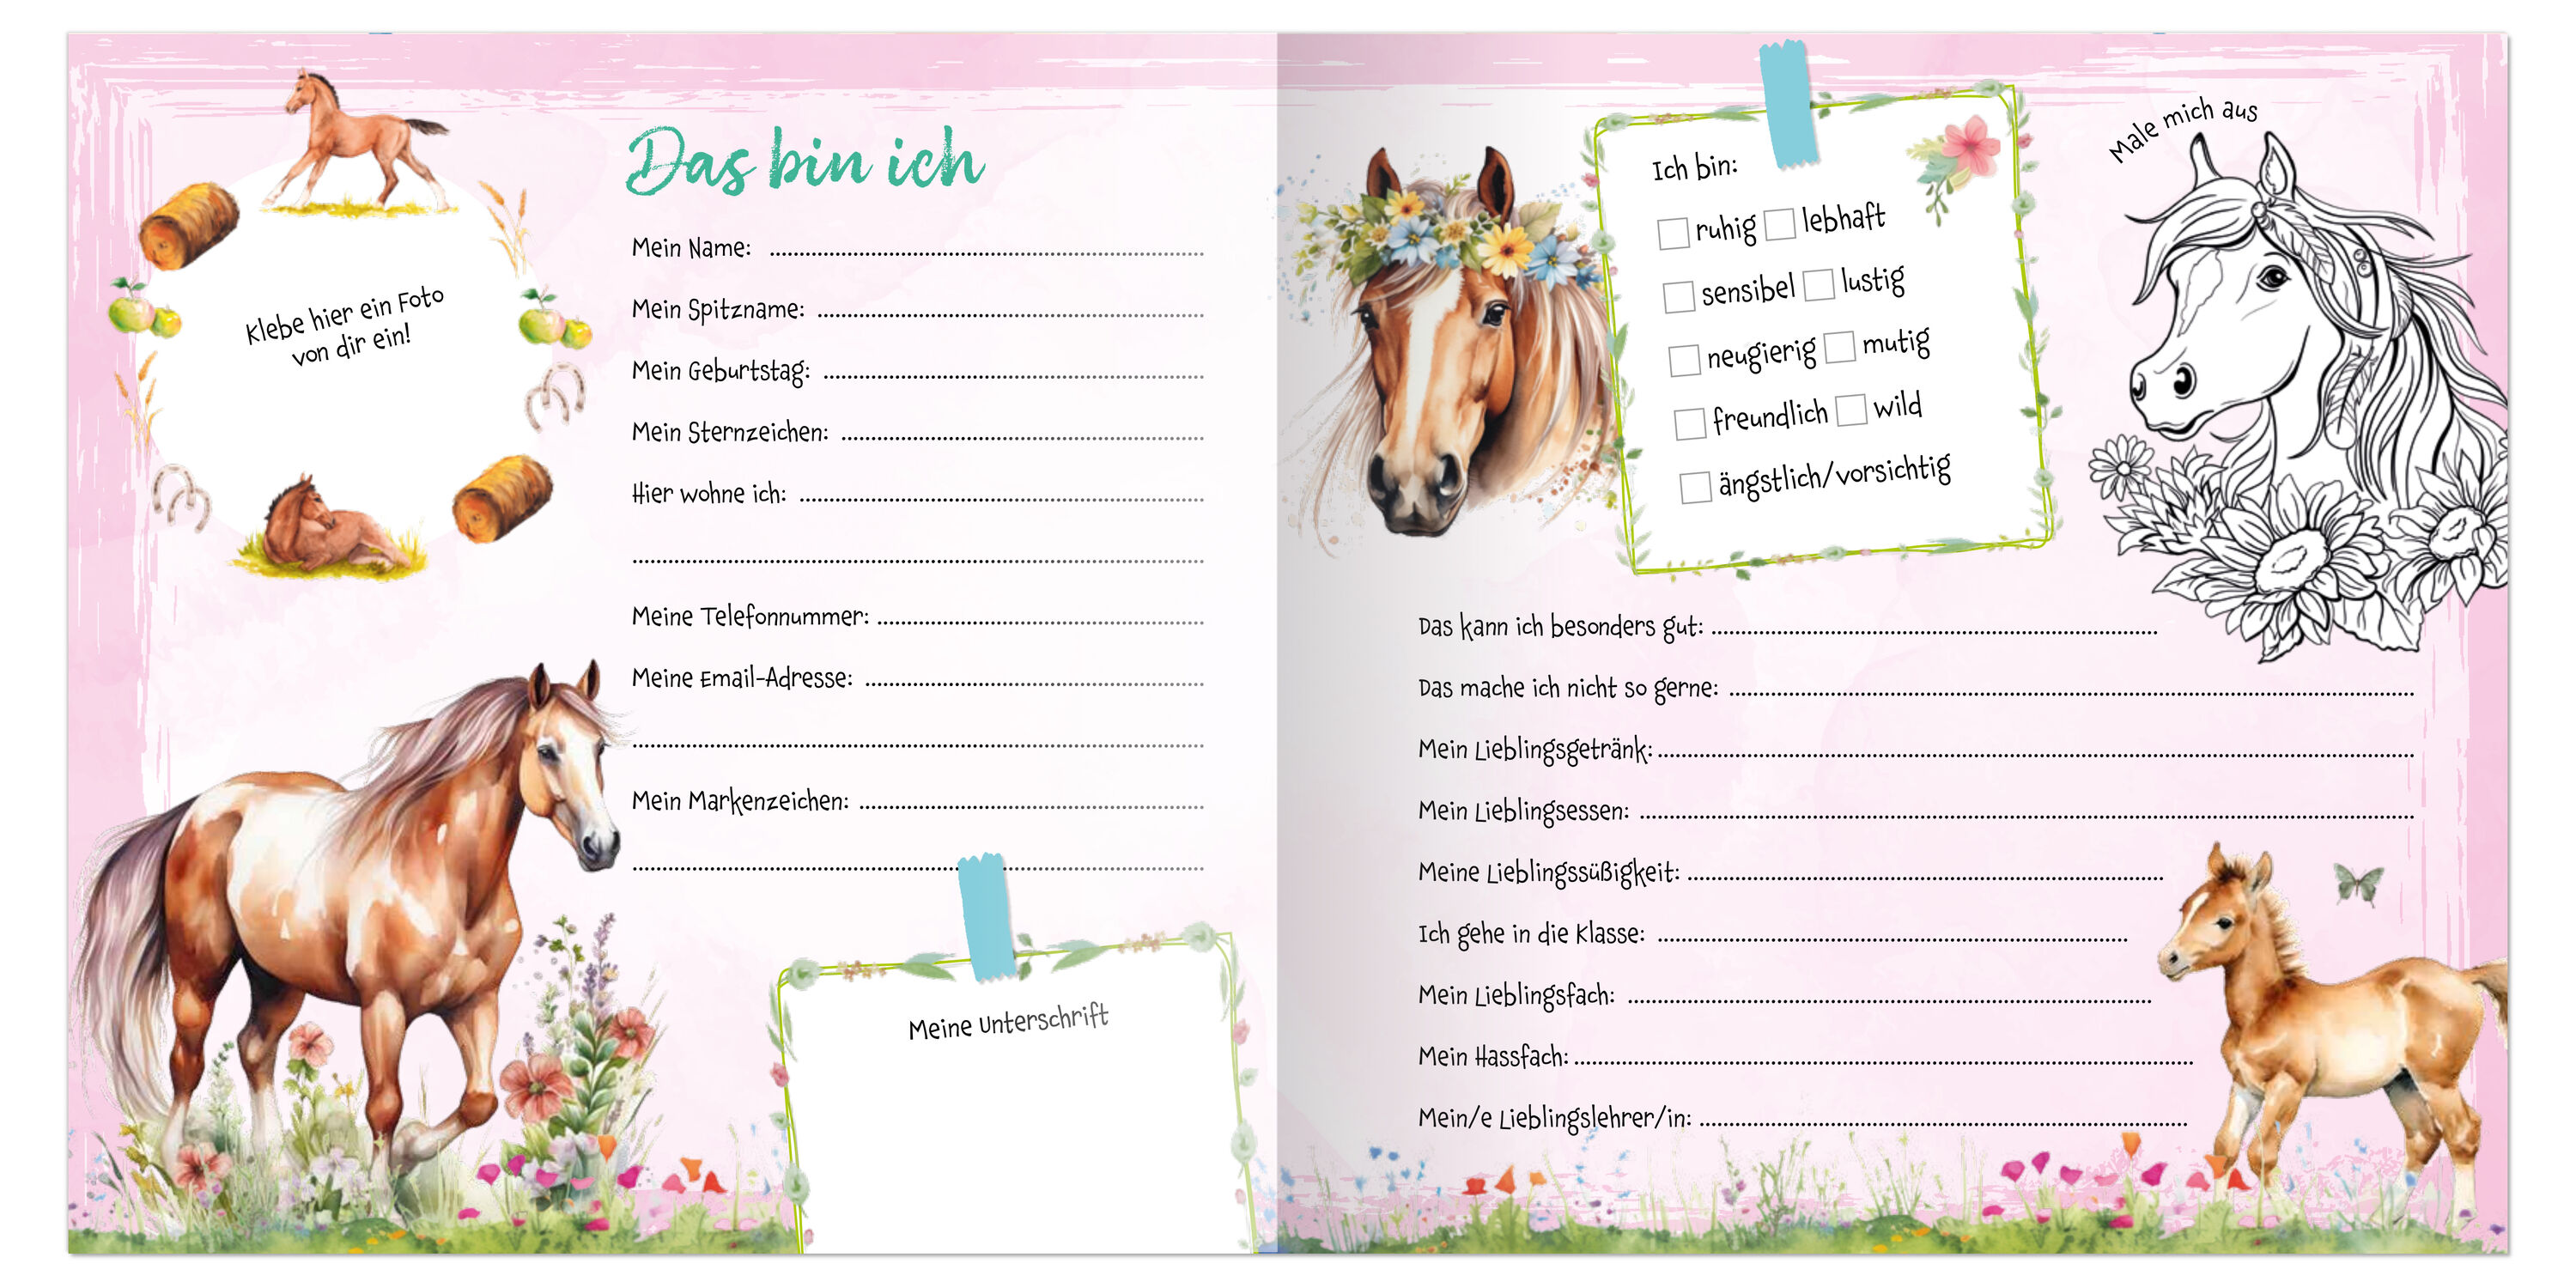 Das bin ich
Klebe hier ein Foto
von dir ein!
Mein Name:
Mein Spitzname:
Mein Geburtstag:
Mein Sternzeichen:
Hier wohne ich:
Meine Telefonnummer:
Meine Email-Adresse:
Mein Markenzeichen:
Meine Unterschrift
Ich bin:
ruhig lebhaft
sensibel lustig
neugierig mutig
freundlich wild
ängstlich/vorsichtig
Male mich aus
Das kann ich besonders gut:
Das mache ich nicht so gerne:
Mein Lieblingsgetränk:
Mein Lieblingsessen:
Meine Lieblingssüßigkeit:
Ich gehe in die Klasse:
Mein Lieblingsfach:
Mein Hassfach:
Mein/e Lieblingslehrer/in: